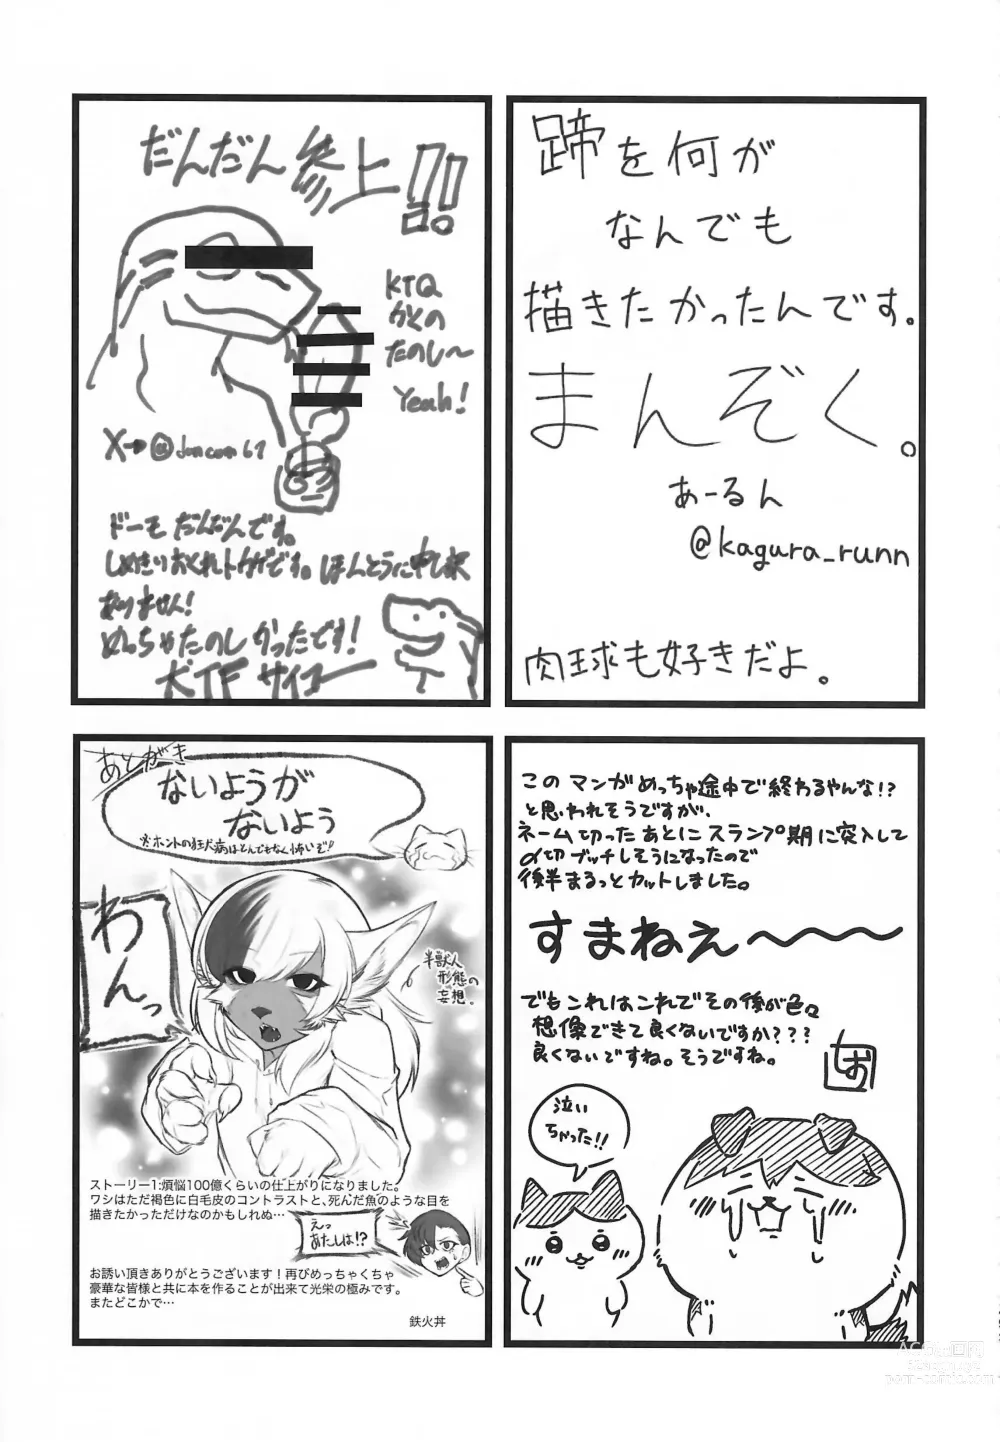 だんだん参上!!
KTQ
かくの
たのし〜
Yeah!
X→@duncum67
ドーモ だんだんです。
しめきりおくれトカゲです。ほんとうに申し訳
ありません!
めっちゃたのしかったです!
犬TF サイコー
蹄を何が
なんでも
描きたかったんです。
まんぞく。
あーるん
@kagura_runn
肉球も好きだよ。
あとがき
ないようが
ないよう
※ホントの狂犬病はとんでもなく怖いぞ!!
わんっ
半獣人
形態の
妄想。
ストーリー1:煩悩100億くらいの仕上がりになりました。
ワシはただ褐色に白毛皮のコントラストと、死んだ魚のような目を
描きたかっただけなのかもしれぬ…
えっ
あたしは!?
お誘い頂きありがとうございます!再びめっちゃくちゃ
豪華な皆様と共に本を作ることが出来て光栄の極みです。
またどこかで…
鉄火丼
このマンガめっちゃ途中で終わるやんな!?
と思われそうですが、
ネーム切ったあとにスランプ期に突入して
〆切ブッチしそうになったので
後半まるっとカットしました。
すまねぇ〜〜〜
でもこれはこれでその後が色々
想像できて良くないですか???
良くないですね。そうですね。
しお
泣い
ちゃった!!
porn-comic.com